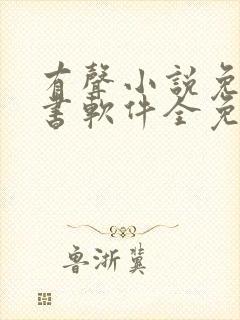 有聲小説免
書軟件全免
魯浙冀